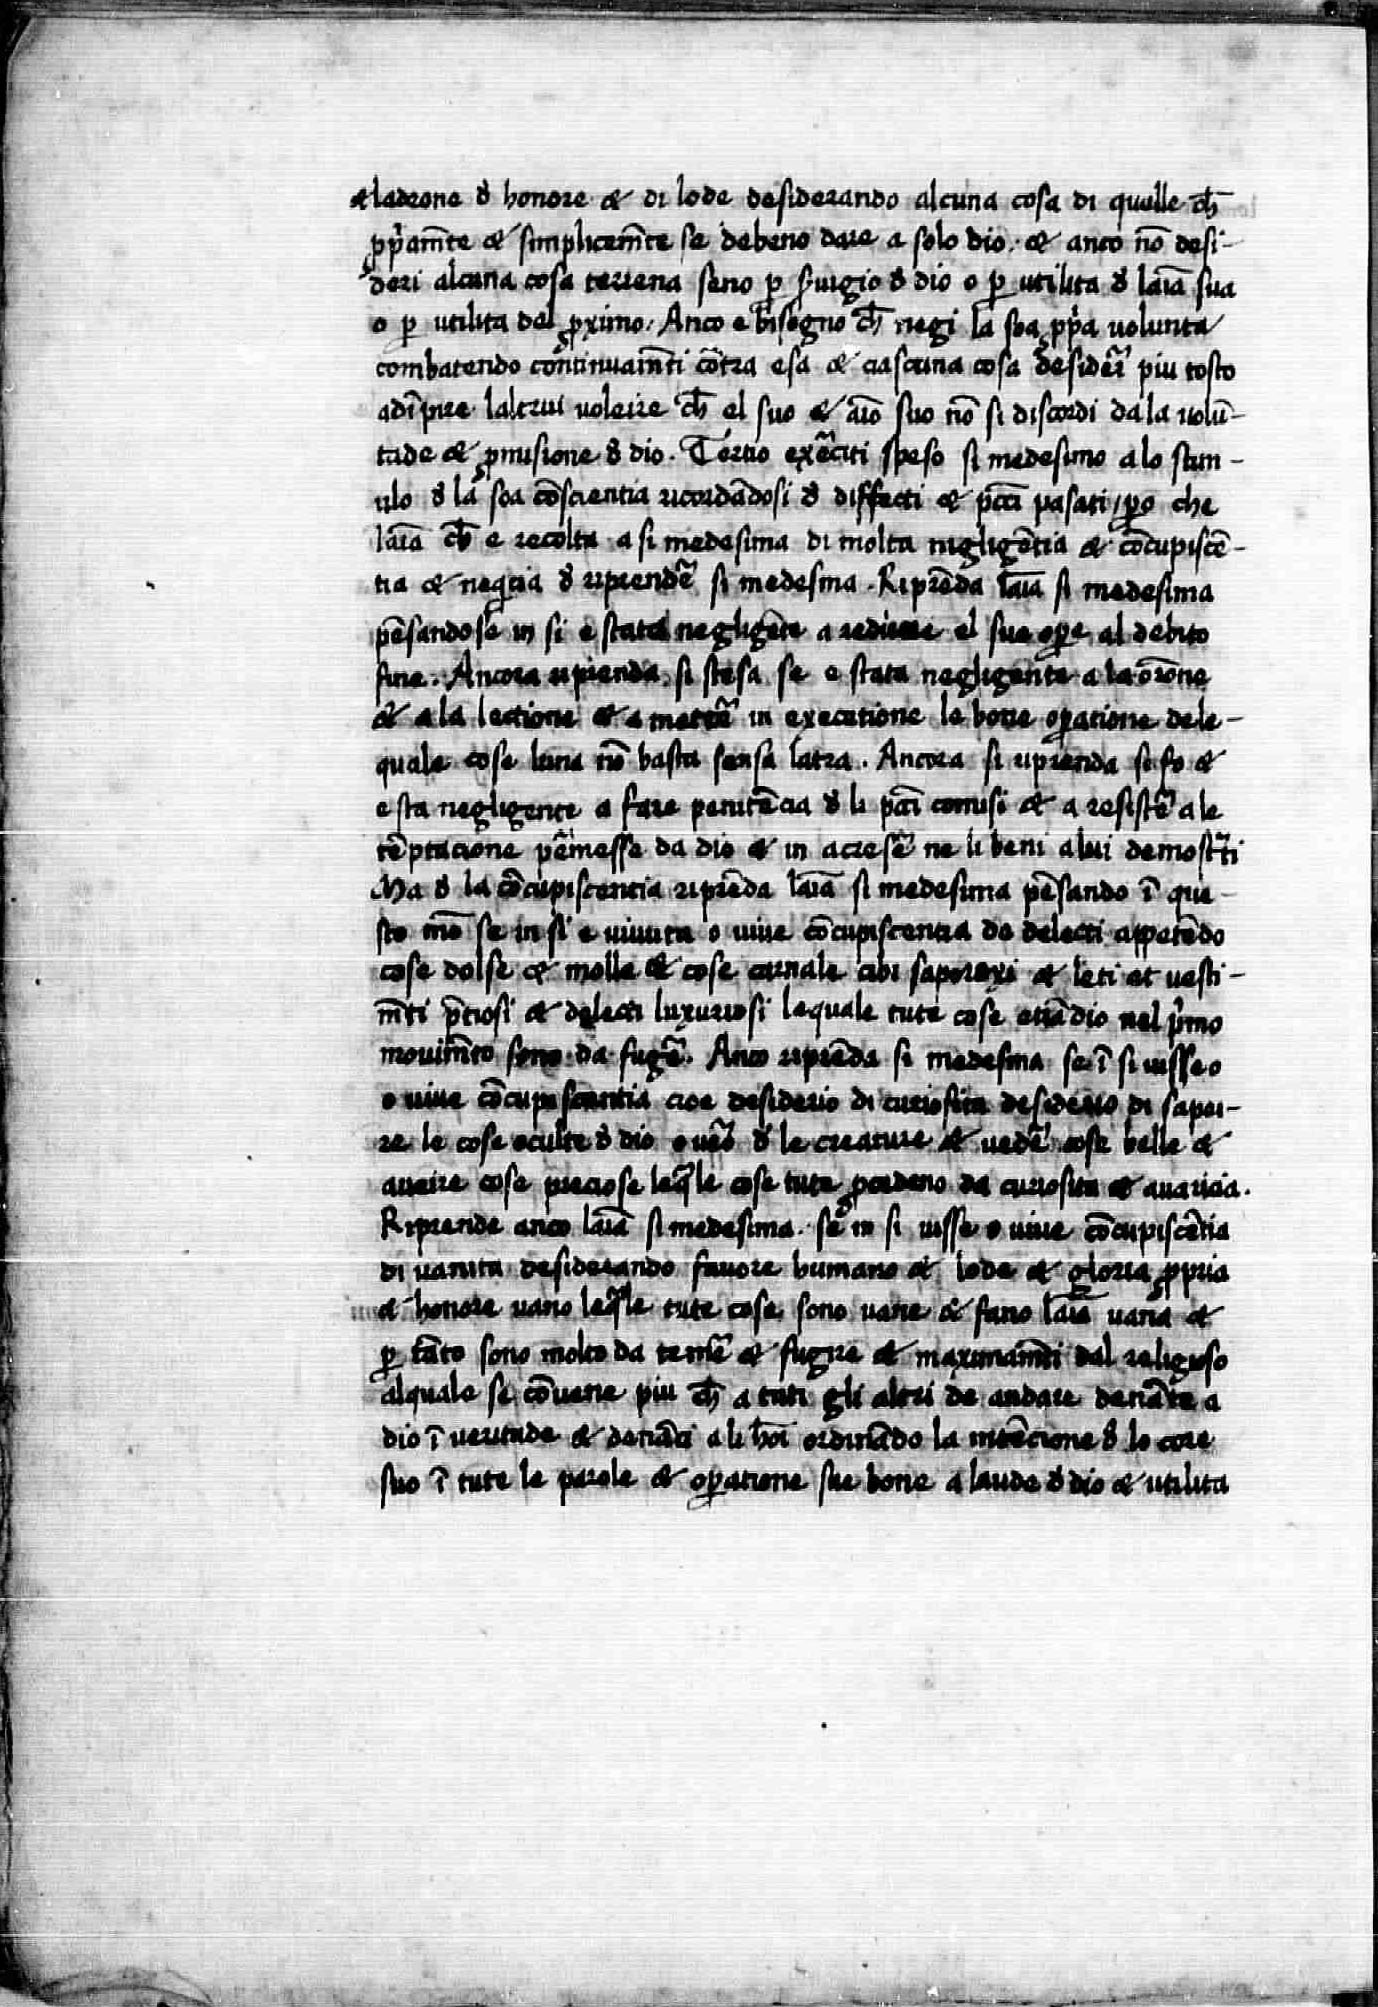 & ladrone đ honore & di lode desiderando alcuna cosa di quelle ch̄
ꝓp̃am̄te & simplicem̄te se debeno dare a solo dio. & anco nō desi-
deri alcuna cosa terrena seno ꝑ s̃uigio đ dio o ꝑ utilita đ laīa sua
o ꝑ utilita del ꝓximo. Anco e bisogno ch̄ negi la soa ꝓp̃a uolunta
combatendo cōntinuam̄ti cōtra esa & ciascuna cosa desider̃ piu tosto
adīpire laltrui uoleire ch̄ el suo & aīo suo nō si discordi da la uolū-
tade & ꝓuisione đ dio. Tertio exerciti speso si medesimo a lo stim-
ulo đ la soa cōscientia ricordādosi đ diffecti & pc̄ci pasati / ꝑo che
laīa ch̄ e recolta a si medesima di molta nigligētia & cōcupiscē-
tia & neq̄cia đ riprendẽ si medesma. Riprēda laīa si medesima
pēsando se in si e stata negligēte a redure el suo oꝑe al debito
fine. Ancora riprenda si stesa se e stata negligente a la or̄one
& a la lectione & a mettẽ in executione le bone oꝑatione dele-
quale cose luna nō basta sensa latra. Ancora si riprenda si fo &
e sta negligente a fare penitēcia đ li pc̄ci comisi & a resistẽ a le
tēptacione ꝑmesse da dio & in acresẽ ne li beni a lui demost̃ti
Ma đ la cōcupiscentia riprēda laīa si medesima pēsando ī que-
sto mō se in si e uiuuta o uiue cōcupiscentia de delecti appetēdo
cose dolse & molle & cose carnale cibi saporoxi & leti et uesti-
m̄ti p̃tiosi & delecti luxuriosi lequale tute cose etiādio nel p̃mo
mouim̄to sono da fugẽ. Anco riprēda si medesma se ī si uisse o
o uiue cōcupiscentia cioe desiderio di curiosita desiderio di sapei-
re le cose oculte đ dio o uẽo đ le creature & uedẽ cose belle &
aueire cose preciose leq̃le cose tute ꝓcedeno da curiosita & auaricia.
Riprende anco laīa si medesima. se in si uisse o uiue cōcupiscētia
di uanita desiderando fauore humano & lode & gloria ꝓpria
& honore uano leq̃le tute cose sono uane & fano laīa uana &
ꝑ tāto sono molto da temẽ & fugire & maximam̄ti dal religioso
alquale se cōuene piu ch̄ a tuti gli altri de andare denāte a
dio ī ueritade & denāci a li ho͞i ordinādo la intēcione đ lo core
suo ī tute le parole & oꝑatione sue bone a laude đ dio & utilita